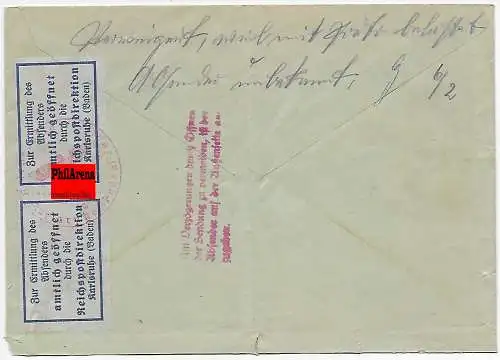 Verweigert, weil mit Porto belastet
Absender unbekannt, 6/2
Zur Ermittlung des
Absenders
amtlich geöffnet
durch die
Reichspostdirektion
Karlsruhe (Baden)
PhilArena
Zur Ermittlung des
Absenders
amtlich geöffnet
durch die
Reichspostdirektion
Karlsruhe (Baden)
Um Verzögerungen beim Öffnen
der Sendung zu vermeiden, ist der
Absender auf der Außenseite an-
zugeben.